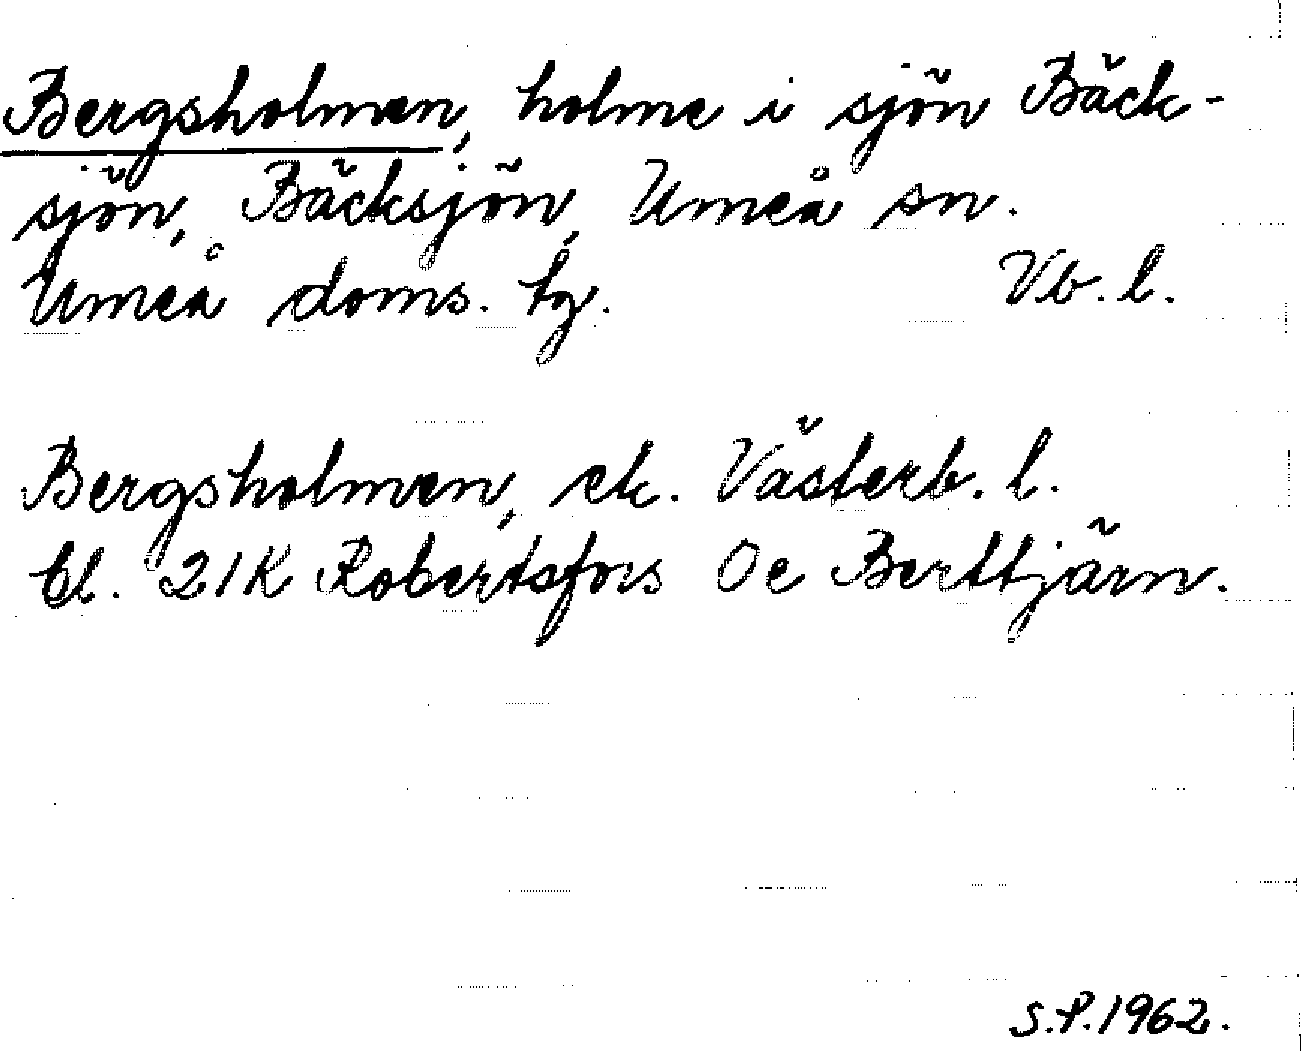 Bergsholmen, holme i sjön Bäck-
sjön, Bäcksjön, Umeå sn.
Umeå doms. tg. Vb. l.
Bergsholmen, ek. Västerb. l.
bl. 21K Robertsfors 0e Berttjärn.
S.P. 1962.